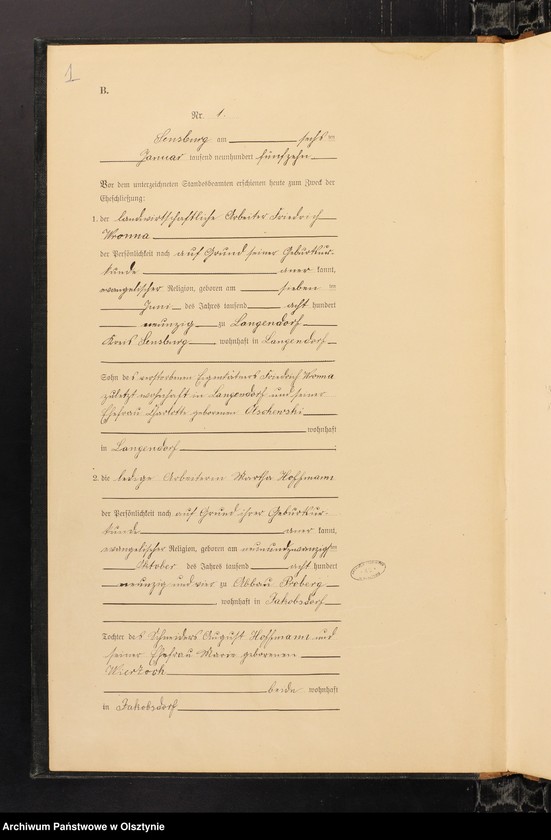 1
B.
Nr. 1.
Sensburg am sechsten
Januar tausend neunhundert fünfzehn
Vor dem unterzeichneten Standesbeamten erschienen heute zum Zweck der
Eheschließung:
1. der landwirtschaftliche Arbeiter Friedrich
Wronna
der Persönlichkeit nach auf Grund seiner Geburtsur-
kunde aner kannt,
evangelischer Religion, geboren am sieben ten
Juni des Jahres tausend acht hundert
neunzig zu Langendorf
Kreis Sensburg wohnhaft in Langendorf
Sohn des verstorbenen Eigentümers Friedrich Wronna
zuletzt wohnhaft in Langendorf und seiner
Ehefrau Charlotte geborenen Olschewski
wohnhaft
in Langendorf
2. die ledige Arbeiterin Martha Hoffmann
der Persönlichkeit nach auf Grund ihrer Geburtsur-
kunde aner kannt,
evangelischer Religion, geboren am neunundzwanzigsten
Oktober des Jahres tausend acht hundert
neunzig und vier zu Abbau Proberg
wohnhaft in Jakobsdorf
Tochter des Schneiders August Hoffmann und
seiner Ehefrau Marie geborenen
beide wohnhaft
in Jakobsdorf
Archiwum Państwowe w Olsztynie